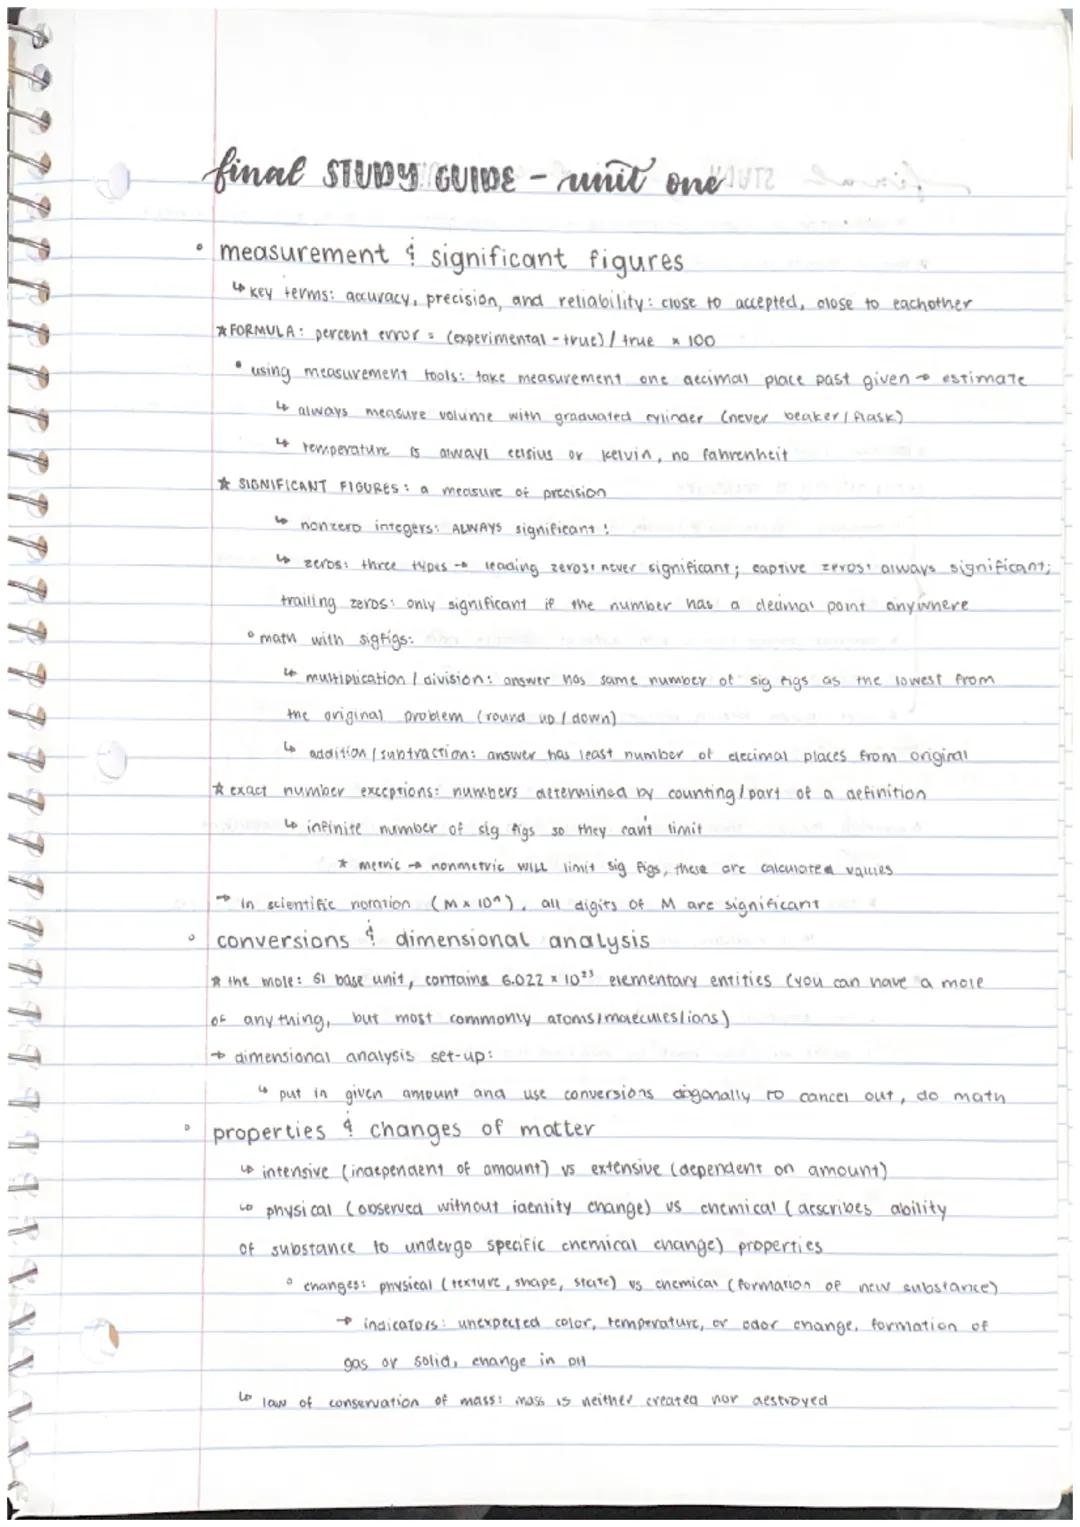 final STUDY GUIDE - unit one
• measurement & significant figures
↳ key terms: accuracy, precision, and reliability: close to accepted, close to eachother
★ FORMULA: percent error = (experimental - true) / true × 100
• using measurement tools: take measurement one decimal place past given → estimate
↳ always measure volume with graduated cylinder (never beaker / flask)
↳ temperature is always celsius or kelvin, no fahrenheit
★ SIGNIFICANT FIGURES: a measure of precision
↳ nonzero integers: ALWAYS significant!
↳ zeros: three types → leading zeros: never significant; captive zeros: always significant;
trailing zeros: only significant if the number has a decimal point anywhere
• math with sigfigs:
↳ multiplication / division: answer has same number of sig figs as the lowest from
the original problem (round up / down)
↳ addition / subtraction: answer has least number of decimal places from original
★ exact number exceptions: numbers determined by counting / part of a definition
↳ infinite number of sig figs so they can't limit
★ metric → nonmetric WILL limit sig figs, these are calculated values
→ in scientific notation (M × 10^), all digits of M are significant
• conversions & dimensional analysis
★ the mole: SI base unit, contains 6.022 × 10²³ elementary entities (you can have a mole
of anything, but most commonly atoms/molecules/ions)
→ dimensional analysis set-up:
↳ put in given amount and use conversions diagonally to cancel out, do math
• properties & changes of matter
↳ intensive (independent of amount) vs extensive (dependent on amount)
↳ physical (observed without identity change) vs chemical (describes ability
of substance to undergo specific chemical change) properties
• changes: physical (texture, shape, state) vs chemical (formation of new substance)
→ indicators: unexpected color, temperature, or odor change, formation of
gas or solid, change in pH
↳ law of conservation of mass: mass is neither created nor destroyed